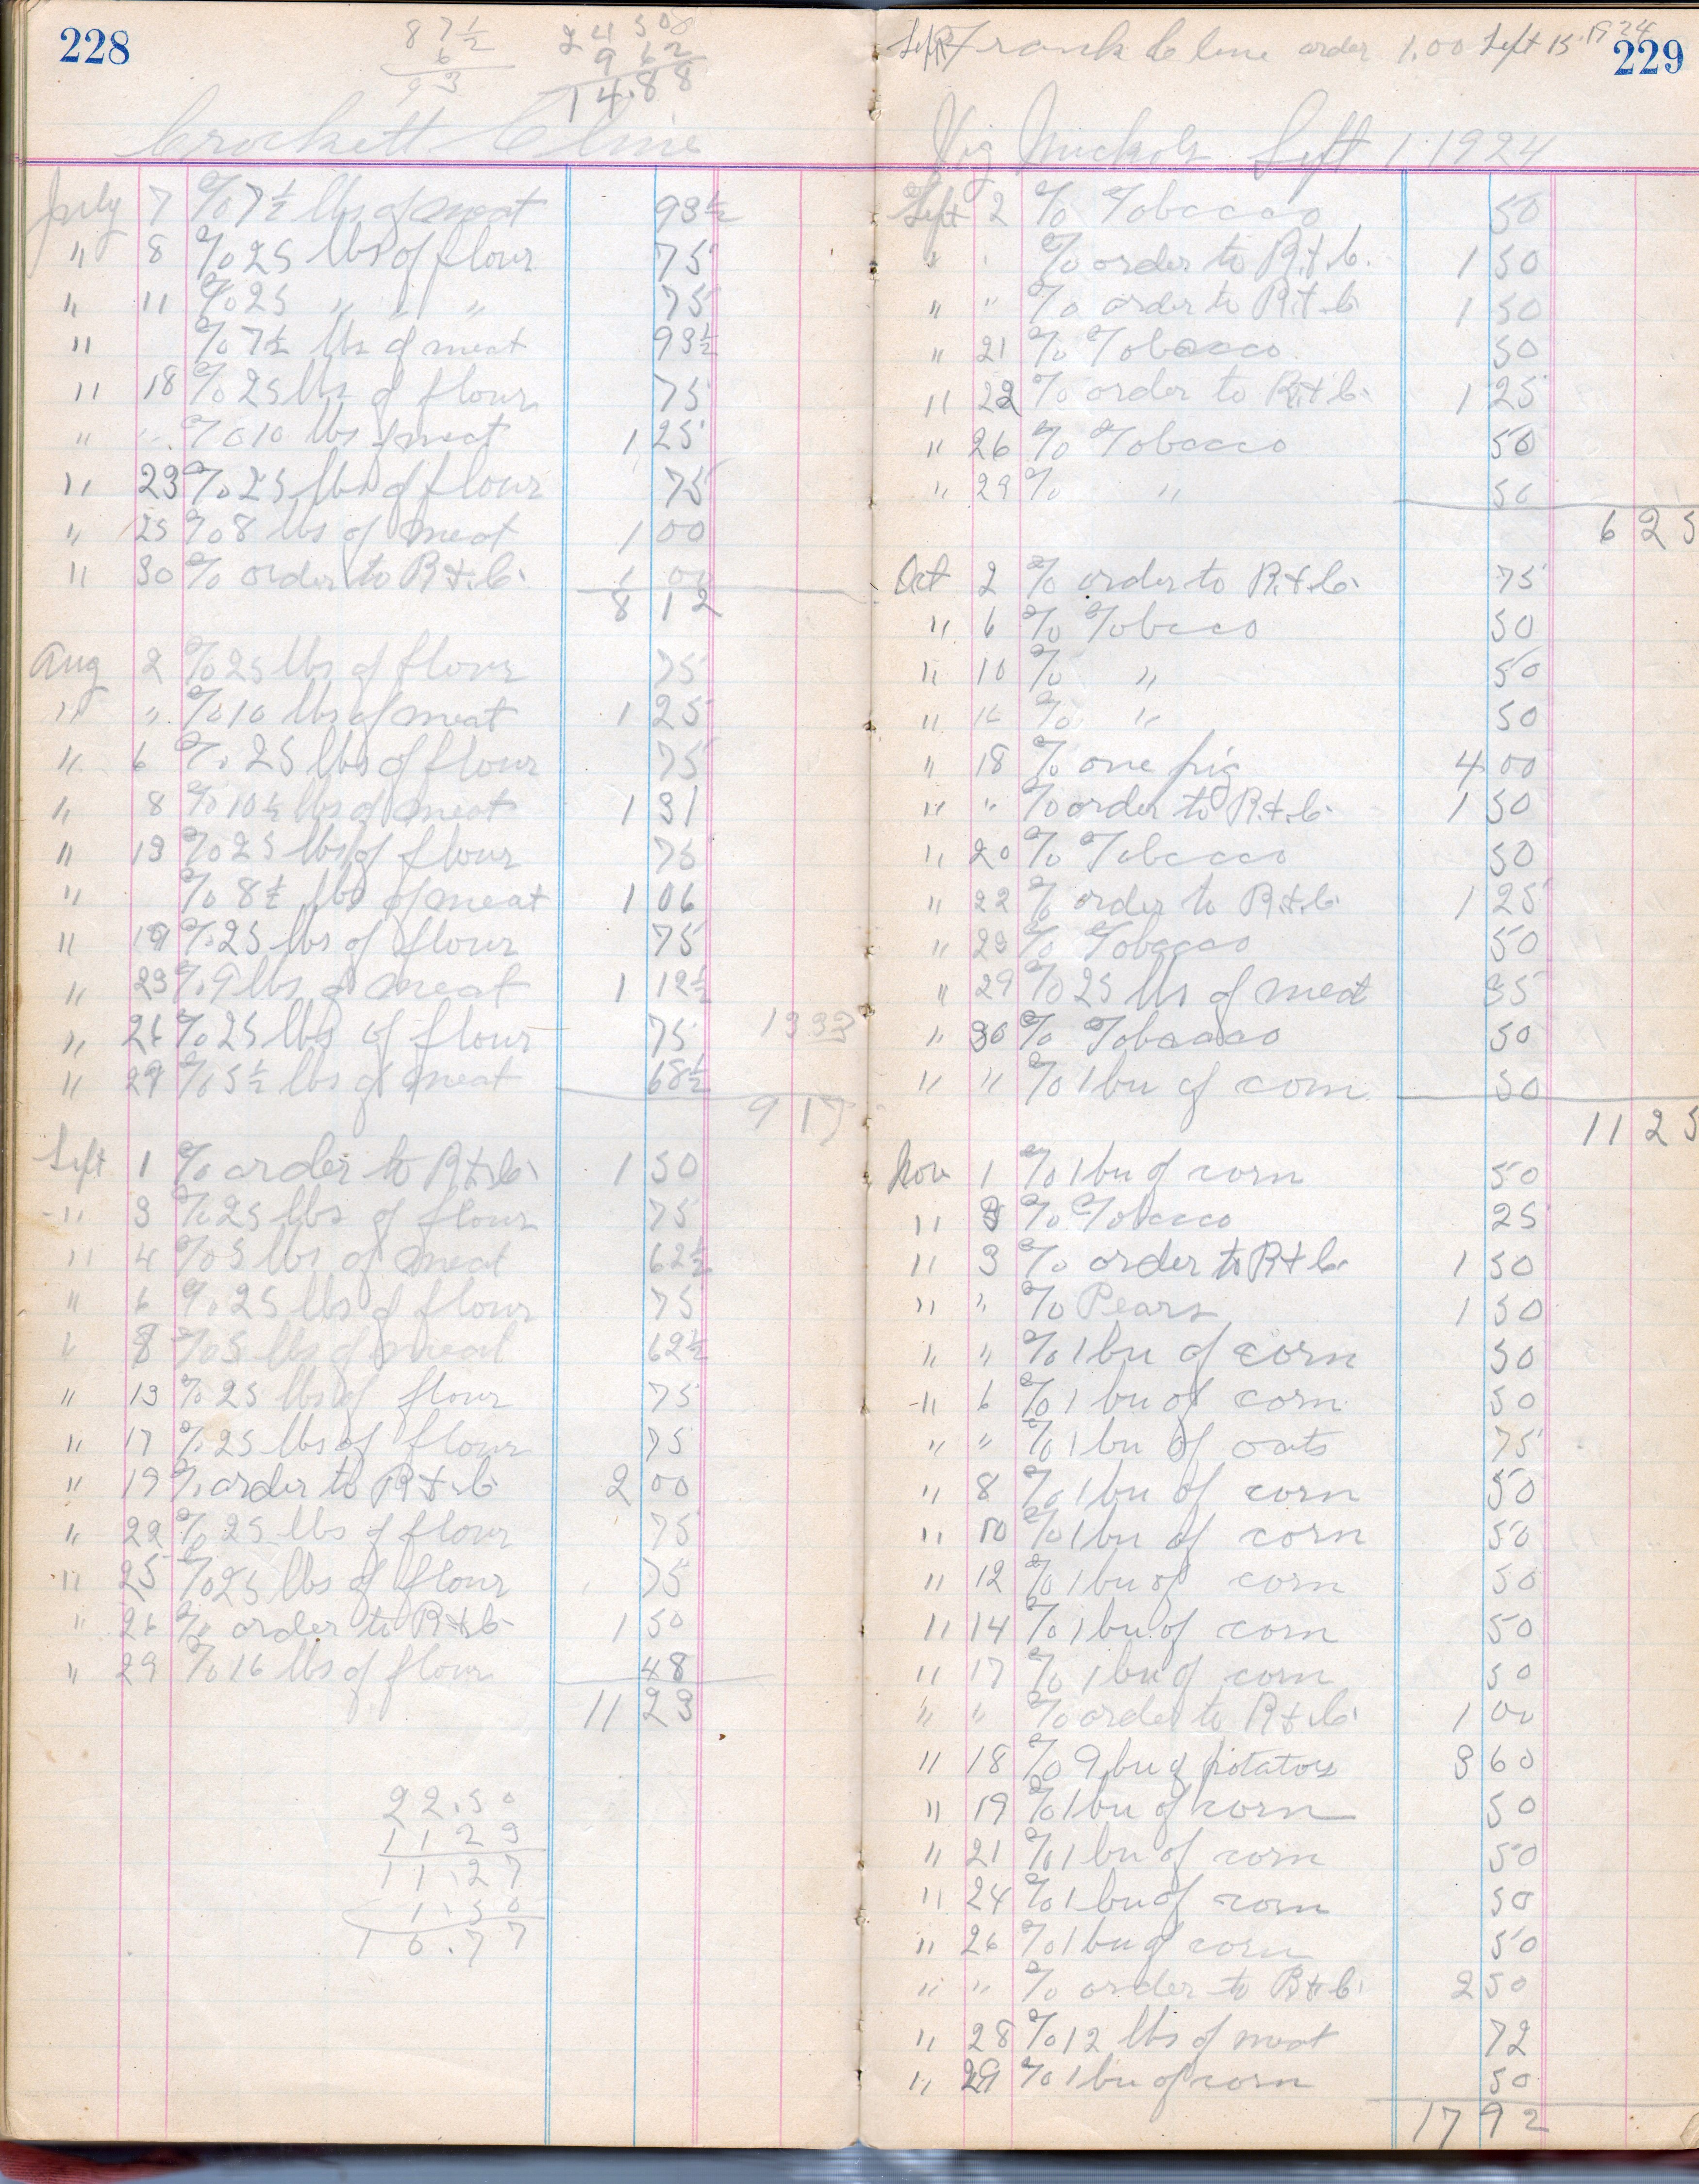 228
8 7½
6
9 3
24 50
9 62
14.88
Crockett Cline
July 7 % 7½ lbs of meat 93½
" 8 % 25 lbs of flour 75
" 11 % 25 " " " 75
" % 7½ lbs of meat 93½
" 18 % 25 lbs of flour 75
" " % 10 lbs of meat 1 25
" 23 % 25 lbs of flour 75
" 25 % 8 lbs of meat 1 00
" 30 % order to R & C. 1 00
8 12
Aug 2 % 25 lbs of flour 75
" " % 10 lbs of meat 1 25
" 6 % 25 lbs of flour 75
" 8 % 10½ lbs of meat 1 31
" 13 % 25 lbs of flour 75
" % 8½ lbs of meat 1 06
" 19 % 25 lbs of flour 75
" 23 % 9 lbs of meat 1 12½
" 26 % 25 lbs of flour 75 1333
" 29 % 5½ lbs of meat 68½
9 17
Sept 1 % order to R & C. 1 50
" 3 % 25 lbs of flour 75
" 4 % 5 lbs of meat 62½
" 6 % 25 lbs of flour 75
" 8 % 5 lbs of meat 62½
" 13 % 25 lbs of flour 75
" 17 % 25 lbs of flour 75
" 19 % order to R & C 2 00
" 22 % 25 lbs of flour 75
" 25 % 25 lbs of flour 75
" 26 % order to R & C 1 50
" 29 % 16 lbs of flour 48
11 23
22.50
11 23
11.27
1.50
10.77
229
Sept Frank Cline order 1.00 Sept 15 1924
Nichols Sept 1 1924
Sept 2 % Tobacco 50
" " % order to R. & C. 1 50
" " % order to R. & C 1 50
" 21 % Tobacco 50
" 22 % order to R. & C. 1 25
" 26 % Tobacco 50
" 29 % " 50
6 25
Oct 2 % order to R. & C. 75
" 6 % Tobcco 50
" 10 % " 50
" 16 % " 50
" 18 % one pig 4 00
" " % order to R. & C. 1 50
" 20 % Tobacco 50
" 22 % order to R. & C. 1 25
" 23 % Tobacco 50
" 29 % 25 lbs of meat 35
" 30 % Tobacco 50
" " % 1 bu of corn 50
11 25
Nov 1 % 1 bu of corn 50
" 3 % Tobacco 25
" 3 % order to R & C. 1 50
" " % Pears 1 50
" " % 1 bu of corn 50
" 6 % 1 bu of corn 50
" " % 1 bu of oats 75
" 8 % 1 bu of corn 50
" 10 % 1 bu of corn 50
" 12 % 1 bu of corn 50
" 14 % 1 bu of corn 50
" 17 % 1 bu of corn 50
" " % order to R & C. 1 00
" 18 % 9 bu of potatoes 3 60
" 19 % 1 bu of corn 50
" 21 % 1 bu of corn 50
" 24 % 1 bu of corn 50
" 26 % 1 bu of corn 50
" " % order to R & C. 2 50
" 28 % 12 lbs of meat 72
" 29 % 1 bu of corn 50
17 92